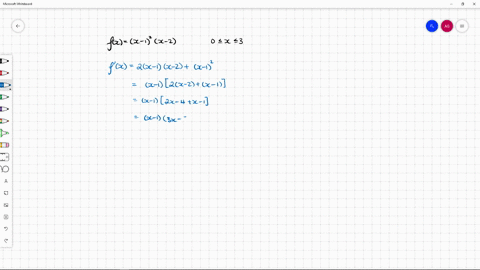 Microsoft Whiteboard
f(x) = (x-1)² (x-2) 0 ≤ x ≤ 3
f'(x) = 2(x-1)(x-2) + (x-1)²
= (x-1)[2(x-2)+(x-1)]
= (x-1)[2x-4+x-1]
= (x-1)(3x-